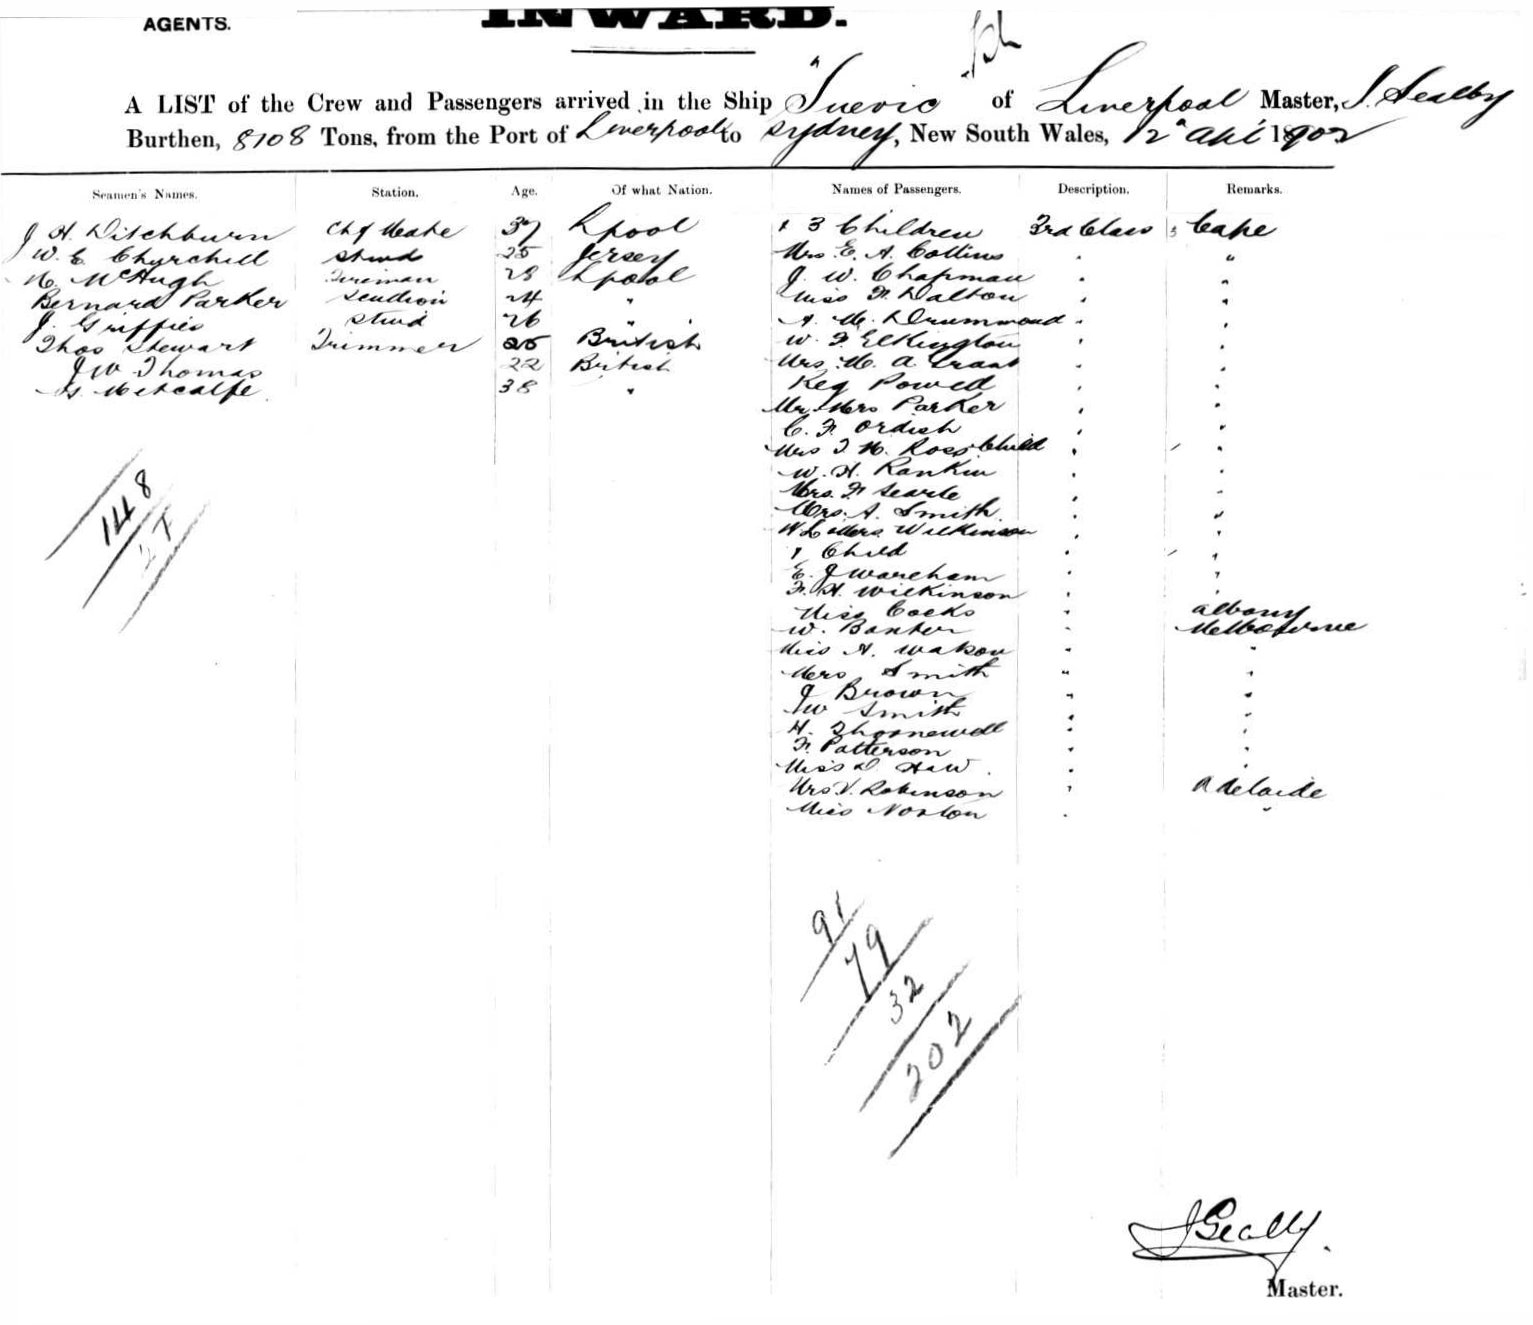 AGENTS.
INWARD.
A LIST of the Crew and Passengers arrived in the Ship "Suevic of Liverpool Master, J. Sealby
Burthen, 8108 Tons, from the Port of Liverpool to Sydney, New South Wales, 12" Apl 1902
Seamen's Names. Station. Age. Of what Nation. Names of Passengers. Description. Remarks.
J H Ditchburn Chf 37 Lpool 3 Children 3rd Class Cape
W. E Churchill Stwd 25 Jersey Mrs E. A. Collins " "
McHugh Fireman 28 Lpool J. W. Chapman " "
Bernard Parker Scullion 24 " Miss F. Dalton " "
J. Griffies Stwd 26 " A. M. Drummond " "
Thos Stewart Trimmer 25 British W. F. Elkington " "
J W Thomas 22 British Mrs M. A Grant " "
G. Metcalfe 38 " Reg Powell " "
Mr Mrs Parker " "
C. F. Ordish " "
Mrs J H. Ross Child " "
W. H. Rankin " "
Mrs. F Searle " "
Mrs. A. Smith " "
W L Mrs Wilkinson " "
1 Child " "
E. J Wareham " "
F. H. Wilkinson " "
Miss Cocks " Albany
W. Banter " Melbourne
Miss A. Watson " "
Mrs Smith " "
J Brown " "
J W Smith " "
H. " "
F. Patterson " "
Miss D. Haw " "
Mrs V. Robinson " Adelaide
Miss Norton " "
148
27
91
79
32
202
J Sealby
Master.